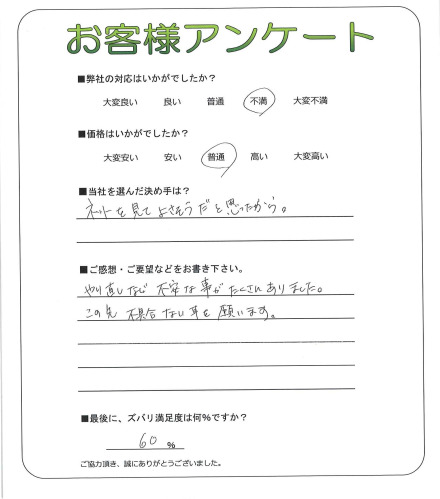 お客様アンケート
■弊社の対応はいかがでしたか？
大変良い 良い 普通 不満 大変不満
■価格はいかがでしたか？
大変安い 安い 普通 高い 大変高い
■当社を選んだ決め手は？
ネットを見てよさそうだと思ったから。
■ご感想・ご要望などをお書き下さい。
やり直しなど 不安な事がたくさんありました。
この先 不具合ない事を願います。
■最後に、ズバリ満足度は何％ですか？
60 %
ご協力頂き、誠にありがとうございました。